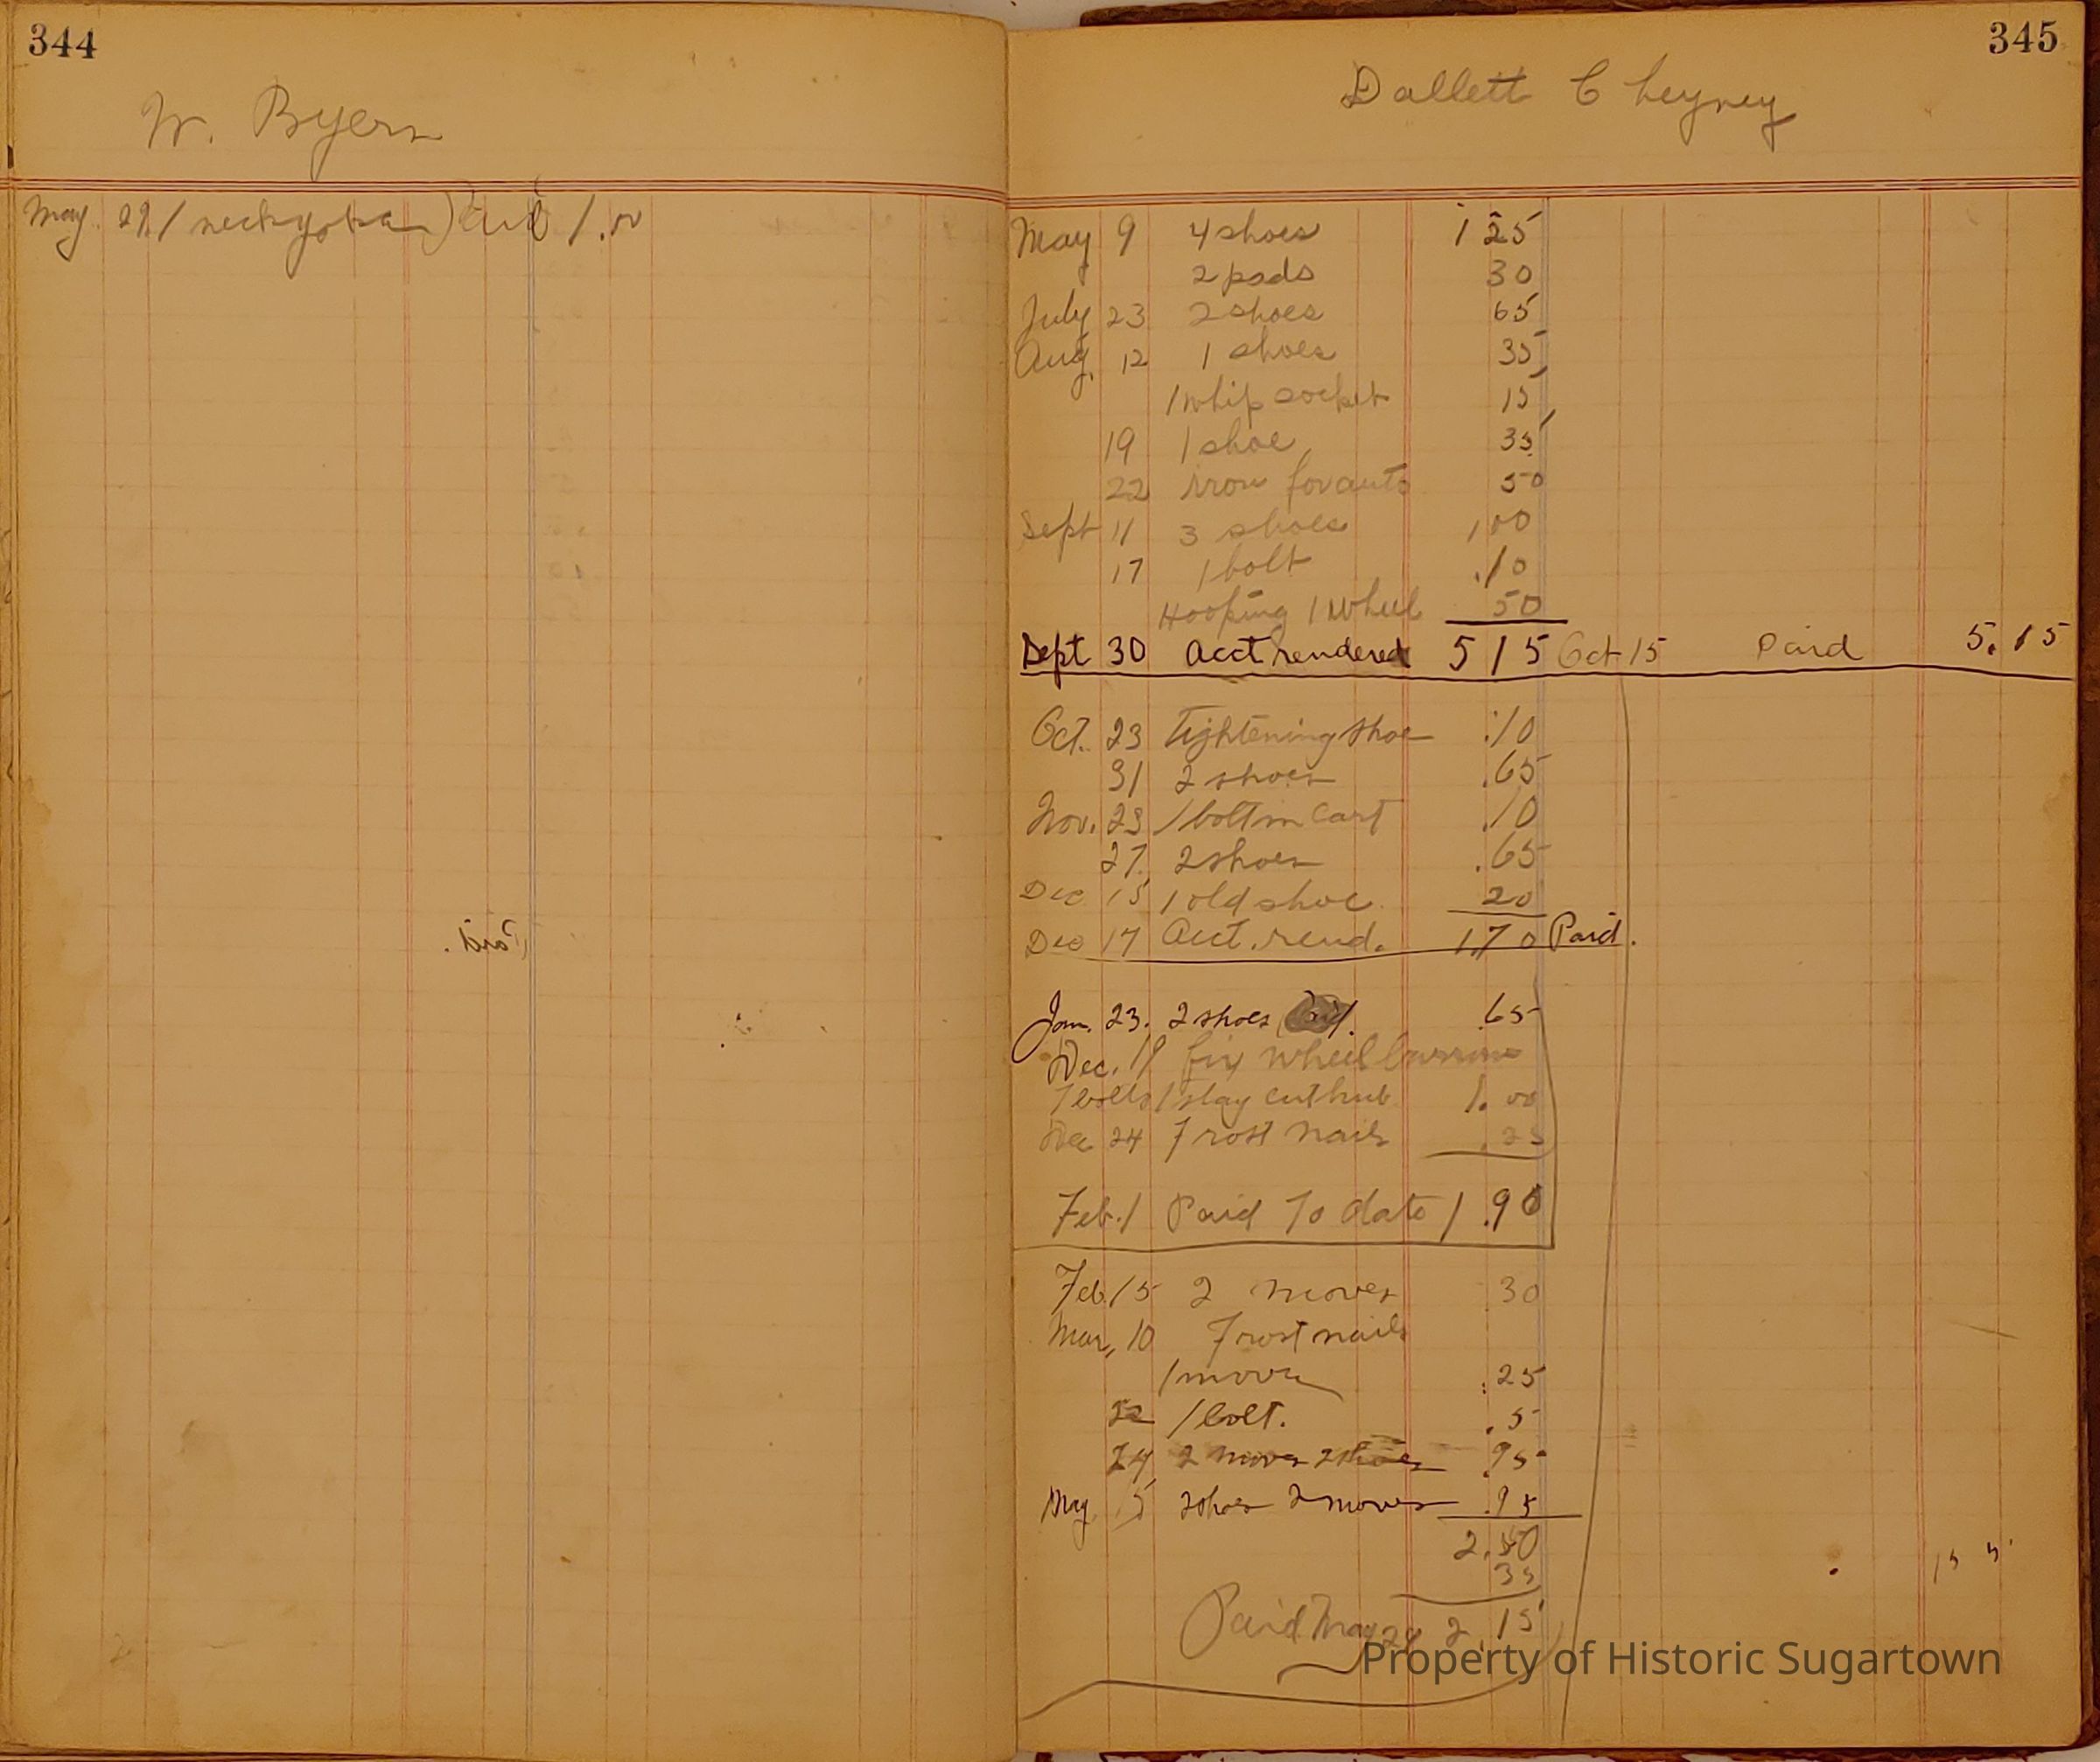 344
W. Byers
May 29 1 neckyoke Paid 1.00
345
Dallett Cheyney
May 9 4 shoes 1 25
2 pads 30
July 23 2 shoes 65
Aug. 12 1 shoes 35
1 whip socket 15
19 1 shoe 35
22 iron for auto 50
Sept 11 3 shoes 1 00
17 1 bolt .10
Hooping 1 wheel 50
Sept 30 Acct rendered 5 15 Oct 15 Paid 5.15
Oct. 23 tightening shoe .10
31 2 shoes .65
Nov. 23 1 bolt in cart .10
27 2 shoes .65
Dec 15 1 old shoe 20
Dec 17 Acct. rend. 1.70 Paid.
Jan. 23. 2 shoes Paid. .65
Dec. 19 fix wheel barrow
bolts 1 stay cut hub 1.00
Dec 24 Frost nails .25
Feb. 1 Paid To date 1.90
Feb. 15 2 moves 30
Mar, 10 Frost nails
1 move .25
22 1 bolt. .5
24 2 moves 2 shoes .95
May 15 2 shoes 2 moves .95
2.50
35
Paid May 24 2.15
Property of Historic Sugartown